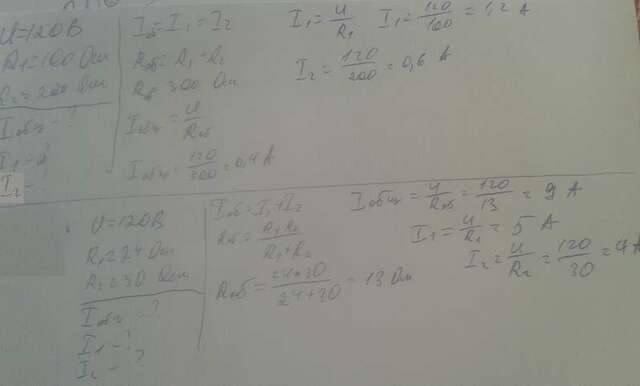 U=120В
R1=100 Ом
R2=200 Ом
Iобщ - ?
I1 - ?
I2 - ?
Iоб=I1=I2
Rоб=R1+R2
Rоб=300 Ом
Iобщ=U/Rоб
Iобщ=120/300=0,4 А
I1=U/R1 I1=120/100=1,2 А
I2=120/200=0,6 А
U=120В
R1=24 Ом
R2=30 Ом
Iобщ - ?
I1 - ?
I2 - ?
Iоб=I1+I2
Rоб=R1·R2/R1+R2
Rоб=24·30/24+30=13 Ом
Iобщ=U/Rоб=120/13=9 А
I1=U/R1=5 А
I2=U/R2=120/30=4 А